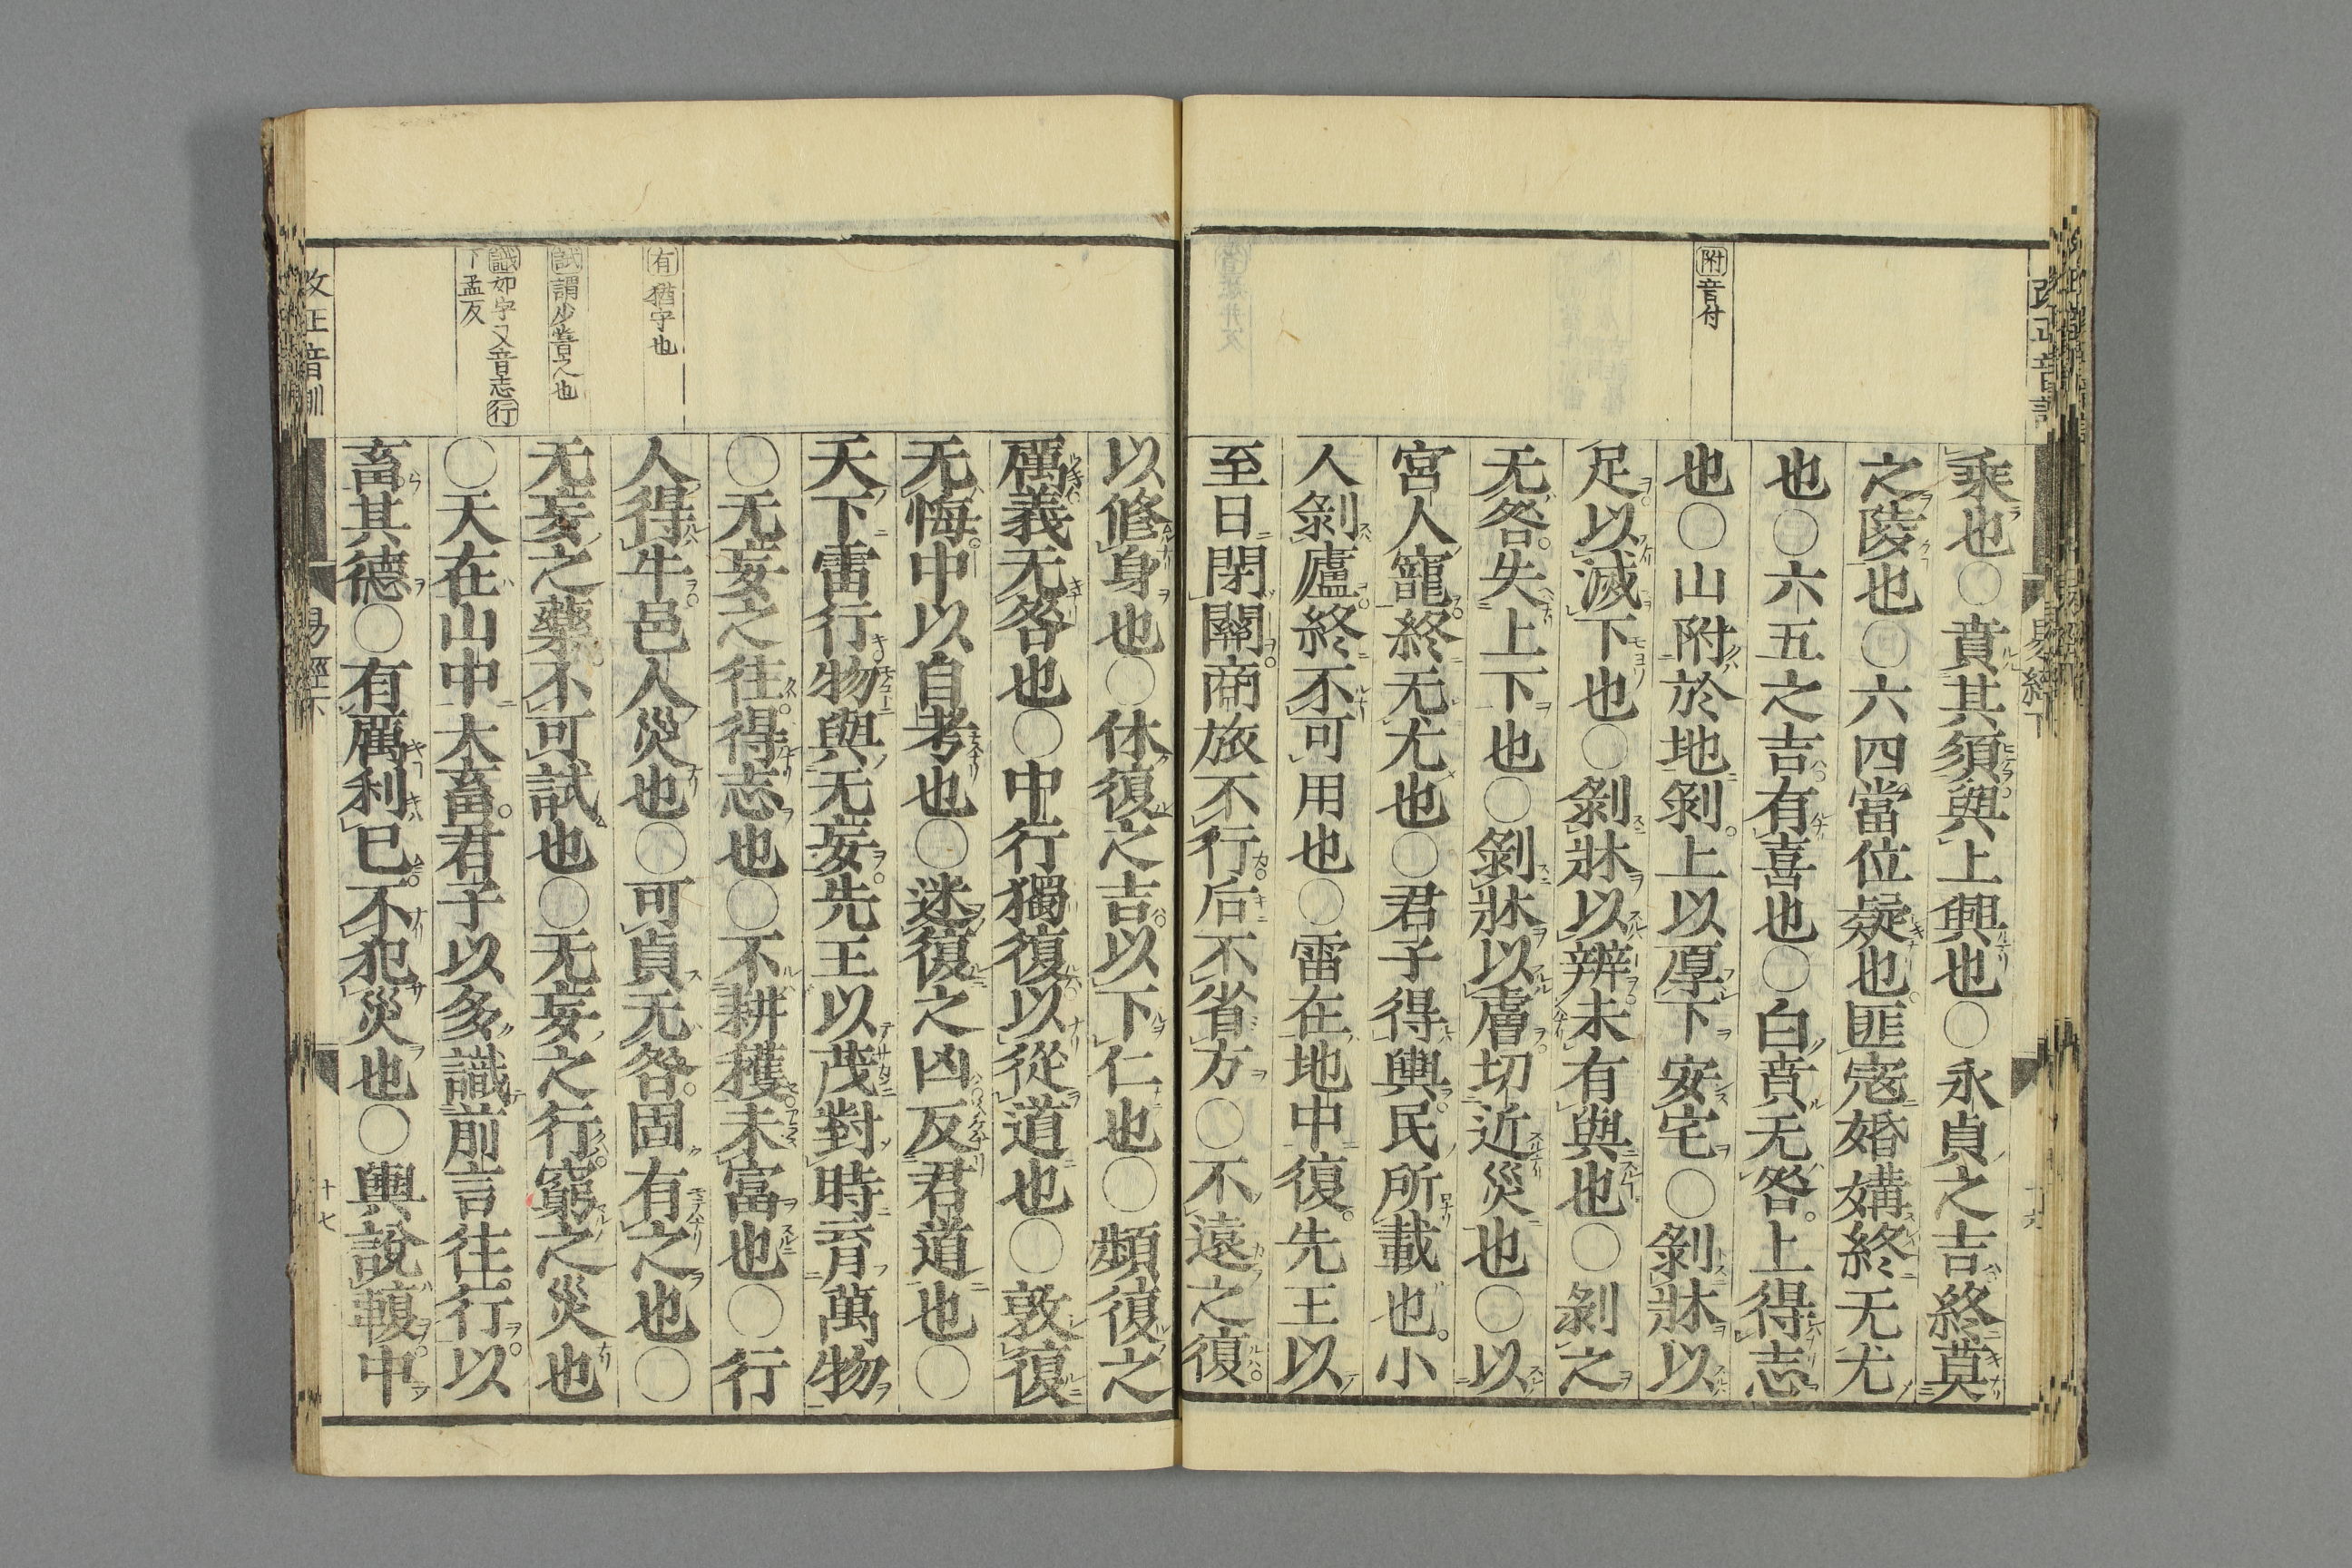 附音付
乘也○賁其須與上興也○永貞之吉終莫
之陵也○六四當位疑也匪寇婚媾終无尤
也○六五之吉有喜也○白賁无咎上得志
也○山附於地剝上以厚下安宅○剝牀以
足以滅下也○剝牀以辨未有與也○剝之
无咎失上下也○剝牀以膚切近災也○以
宮人寵終无尤也○君子得輿民所載也小
人剝廬終不可用也○雷在地中復先王以
至日閉關商旅不行后不省方○不遠之復
有猶字也
試謂少嘗之也
識如字又音志行
下孟反
以修身也○休復之吉以下仁也○頻復之
厲義无咎也○中行獨復以從道也○敦復
无悔中以自考也○迷復之凶反君道也○
天下雷行物與无妄先王以茂對時育萬物
○无妄之往得志也○不耕穫未富也○行
人得牛邑人災也○可貞无咎固有之也○
无妄之藥不可試也○无妄之行窮之災也
○天在山中大畜君子以多識前言往行以
畜其德○有厲利已不犯災也○輿說輹中
改正音訓
易經下
十七